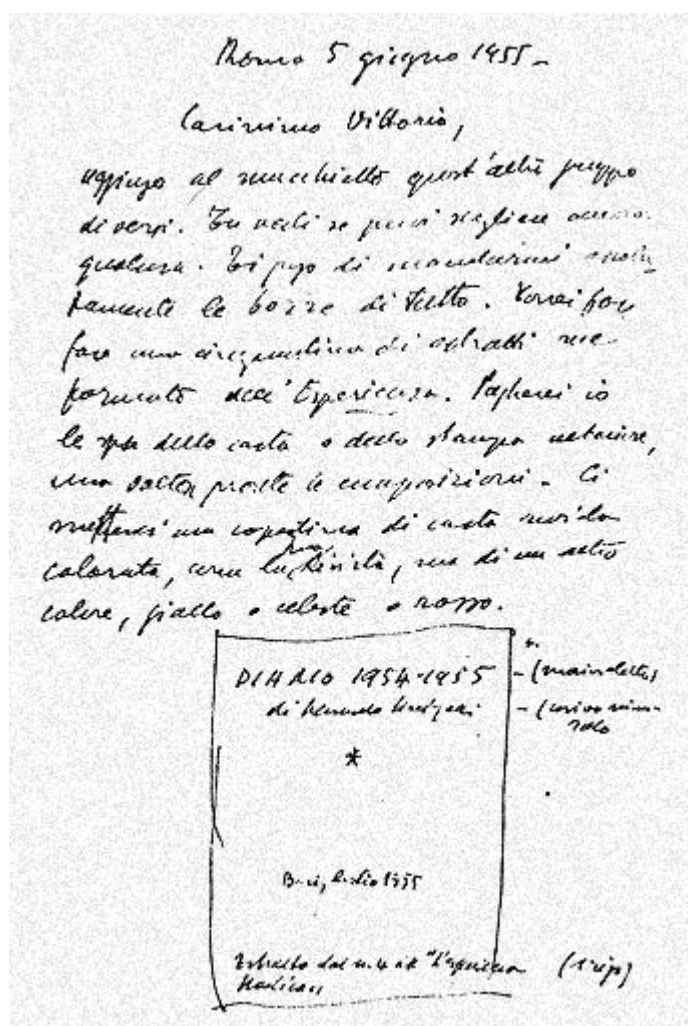 Roma 5 giugno 1955 -
Carissimo Vittorio,
aggiungo al mucchietto quest'altro gruppo
di versi. Tu vedi se puoi scegliere ancora
qualcosa. Ti prego di mandarmi
le bozze di tutto. Vorrei far
fare una cinquantina di estratti nel
formato dell'Esperienza. Pagherei io
le spese della carta e della stampa
una volta pronte le composizioni. Ci
metterei una copertina di carta ruvida
colorata, come la Rivista, ma di un altro
colore, giallo o celeste o rosso.
DIARIO 1954-1955 - (maiuscoletto)
di - (corsivo
*
Bari, luglio 1955
Estratto dal n. 4 de "L'esperienza